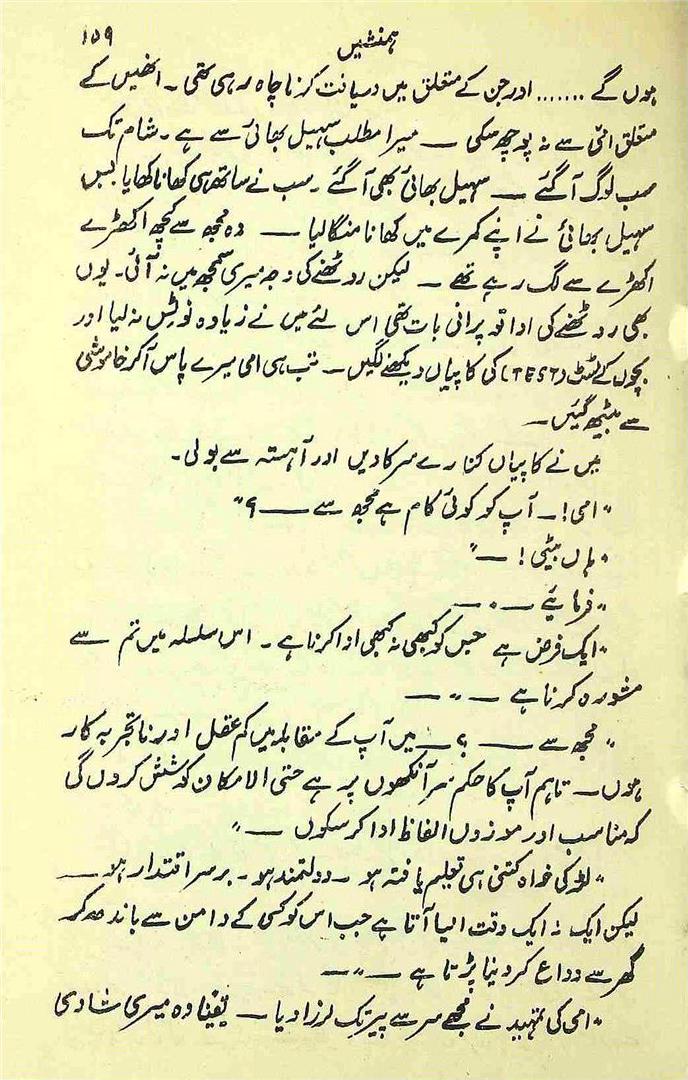 ہمنشیں ۱۵۹
ہوں گے ....... اور جن کے متعلق میں دریافت کرنا چاہ رہی تھی ۔ انھیں کے
متعلق امّی سے نہ پوچھ سکی — میرا مطلب سہیل بھائی سے ہے ۔ شام تک
سب لوگ آ گئے — سہیل بھائی بھی آ گئے ۔ سب نے ساتھ ہی کھانا کھایا بس
سہیل بھائی نے اپنے کمرے میں کھانا منگا لیا — وہ مجھ سے کچھ اکھڑے
اکھڑے سے لگ رہے تھے ۔ لیکن روٹھنے کی وجہ میری سمجھ میں نہ آئی۔ یوں
بھی روٹھنے کی ادا تو پرانی بات تھی اس لئے میں نے زیادہ نوٹس نہ لیا اور
بچوں کے ٹسٹ (TEST) کی کاپیاں دیکھنے لگیں ۔ تب ہی امی میرے پاس آکر خاموشی
سے بیٹھ گئیں ۔
میں نے کاپیاں کنارے سرکا دیں اور آہستہ سے بولی ۔
"امی! ۔ آپ کو کوئی کام ہے مجھ سے — ؟"
"ہاں بیٹی ! —"
"فرمائیے — " —
"ایک فرض ہے جس کو کبھی نہ کبھی ادا کرنا ہے ۔ اس سلسلہ میں تم سے
مشورہ کرنا ہے — " —
"مجھ سے — ؟ — میں آپ کے مقابلہ میں کم عقل اور ناتجربہ کار
ہوں — تاہم آپ کا حکم سر آنکھوں پر ہے حتی الامکان کوشش کروں گی
کہ مناسب اور موزوں الفاظ ادا کر سکوں —"
"لڑکی خواہ کتنی ہی تعلیم یافتہ ہو ۔ دولتمند ہو ۔ برسر اقتدار ہو —
لیکن ایک نہ ایک وقت ایسا آتا ہے جب اس کو کسی کے دامن سے باندھ کر
گھر سے وداع کر دینا پڑتا ہے — " —
"امی کی تمہید نے مجھے سر سے پیر تک لرزا دیا — یقیناً وہ میری شادی